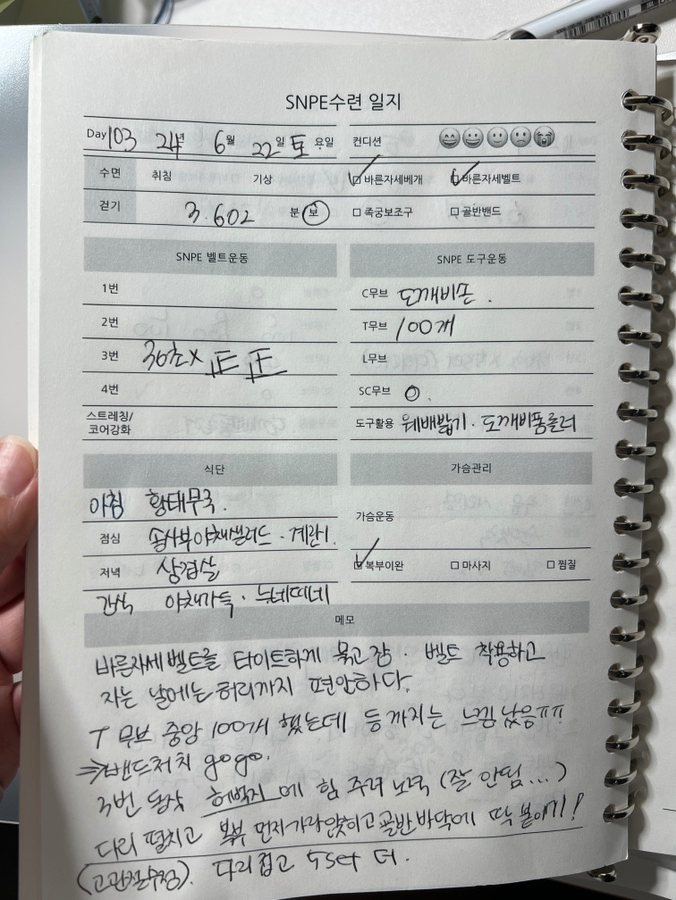 SNPE수련 일지
Day 103 24년 6월 22일 토요일 컨디션
수면 취침 기상 바른자세베개 바른자세벨트
걷기 3.602 분 보 족궁보조구 골반밴드
SNPE 벨트운동 SNPE 도구운동
1번 C무브 도깨비폼.
2번 T무브 100개
3번 30초x 正正 L무브
4번 SC무브 O.
스트레칭/
코어강화 도구활용 웨배밟기 · 도깨비폼롤러
식단 가슴관리
아침 황태무국. 가슴운동
점심 야채샐러드 · 계란1.
저녁 삼겹살 복부이완 마사지 찜질
간식 야채가득 · 뉴네띠네
메모
바른자세벨트를 타이트하게 묶고 잠. 벨트 착용하고
자는 날에는 허리까지 편안하다.
T무브 중앙 100개 했는데 등 까지는 느낌 났음ㅠㅠ
⇒밴드처치 gogo.
3번 동작 허벅지에 힘 주려 노력 (잘 안됨...)
다리 펼치고 복부 먼저 가라앉히고 골반 바닥에 딱 붙이기!
(고관절수정). 다리접고 5set 더.